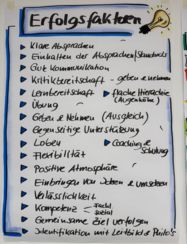 Erfolgsfaktoren
Klare Absprachen
Einhalten der Absprachen/Standards
Gut Kommunikation
Kritikbereitschaft - geben & nehmen
Lernbereitschaft flache Hierarchie
Übung (Augenhöhe)
Geben & Nehmen (Ausgleich)
Gegenseitige Unterstützung
Loben Coaching & Schulung
Flexibilität
Positive Atmosphäre
Einbringen von Ideen & umsetzen
Verlässlichkeit
Kompetenz - fachl. sozial
Gemeinsame Ziel verfolgen
Identifikation mit Leitbild &